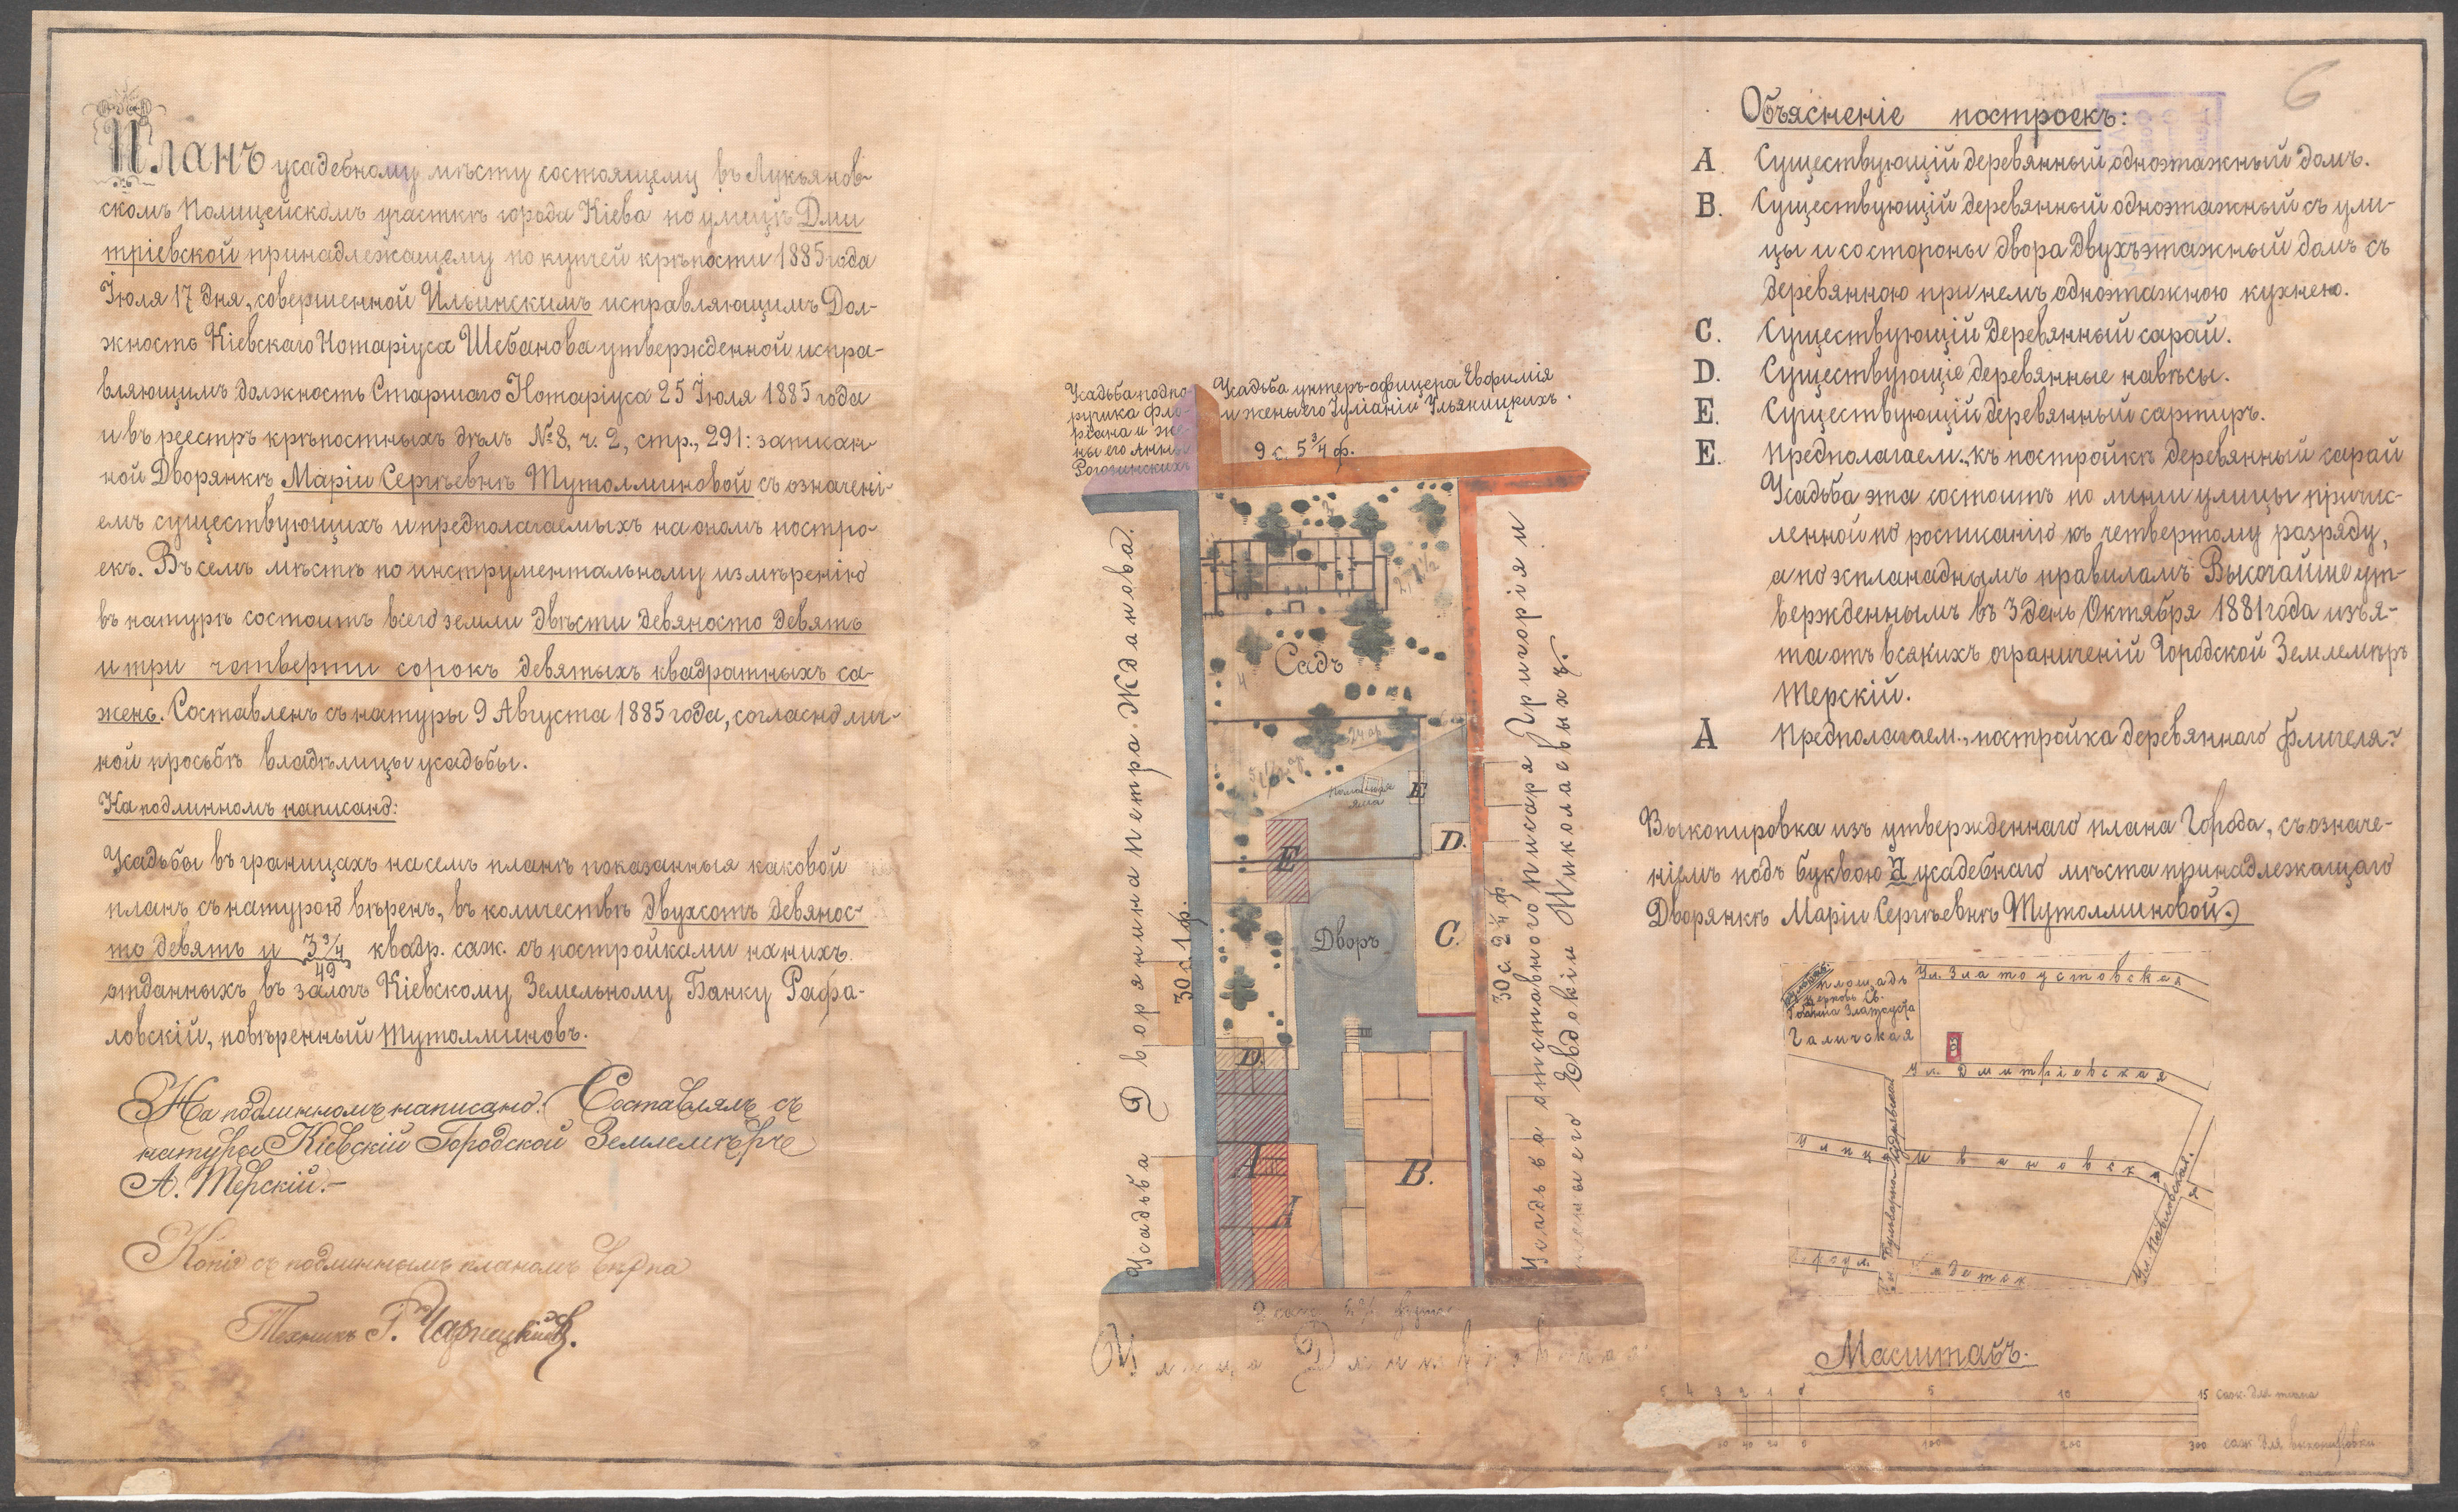 Планъ усадебному мѣсту состоящему въ Лукьянов-
скомъ Полицейскомъ участкѣ города Кіева по улицѣ Дми
тріевской принадлежащему по купчей крѣпости 1885 года
Іюля 17 дня, совершенной Ильинскимъ исправляющимъ Дол-
жность Кіевскаго Нотаріуса Шебанова утвержденной испра-
вляющимъ должность Старшаго Нотаріуса 25 Іюля 1885 года
и въ реестръ крѣпостныхъ дѣлъ № 8, ч. 2, стр., 291: записан-
ной Дворянкѣ Маріи Сергѣевнѣ Тутолминовой съ означені-
емъ существующихъ и предполагаемыхъ на ономъ постро-
екъ. Въ семъ мѣстѣ по инструментальному измѣренію
въ натурѣ состоитъ всего земли двѣсти девяносто девять
и три четверти сорокъ девятыхъ квадратныхъ са-
жень. Составленъ съ натуры 9 Августа 1885 года, согласно лич-
ной просьбѣ владѣлицы усадьбы.
На подлинномъ написано:
Усадьбы въ границахъ на семъ планѣ показанныя каковой
планъ съ натурою вѣренъ, въ количествѣ двухсотъ девянос-
то девять и 3 3/4 / 49 квадр. саж. съ постройками на нихъ.
отданныхъ въ залогъ Кіевскому Земельному Банку Рафа-
ловскій, повѣренный Тутолминовъ.
На подлинномъ написано: Составлялъ съ
натуры Кіевскій Городской Землемѣръ
А. Терскій.-
Копія съ подлиннымъ планомъ вѣрна
Техникъ Г. Чарнецкій.
Усадьба подпо-
ручика Фло-
ріана и же-
ны его Анны
Рогозинскихъ
Усадьба унтеръ-офицера Евфимія
и жены его Іуліаніи Ульяницкихъ.
9 с. 5 3/4 ф.
Усадьба Дворянина Петра Жданова.
30 с. 1 ф.
Садъ
Помойная
яма
E
D.
E
C.
Дворъ
D.
A
B.
30 с. 2 1/4 ф.
Усадьба отставного писаря Григорія и
жены его Евдокіи Николаевыхъ.
Улица Дмитріевская
6
Объясненіе построекъ:
A. Существующій деревянный одноэтажный домъ.
B. Существующій деревянный одноэтажный съ ули-
цы и со стороны двора двухъэтажный домъ съ
деревянною при немъ одноэтажною кухнею.
C. Существующій деревянный сарай.
D. Существующіе деревянные навѣсы.
E. Существующій деревянный сартиръ.
E. Предполагаем., къ постройкѣ деревянный сарай
Усадьба эта состоитъ по линіи улицы причис-
ленной по росписанію къ четвертому разряду,
а по эспланаднымъ правиламъ Высочайше ут-
вержденнымъ въ 3 день Октября 1881 года изъя-
та отъ всякихъ ограниченій Городской Землемѣръ
Терскій.
A Предполагаем., постройка деревяннаго флигеля.
Выкопировка изъ утвержденнаго плана Города, съ означе-
ніемъ подъ буквою а усадебнаго мѣста принадлежащаго
Дворянкѣ Маріи Сергѣевнѣ Тутолминовой.)
Ул. Златоустовская
площадь
церковь Св.
Іоанна Златоуста
Галичская
а
Ул. Дмитріевская
Улица Ивановская
Бульварно-Кудрявская
Ул. Павловская.
Масштабъ.
5 4 3 2 1 0 5 10 15 саж. для плана
40 20 0 100 200 300 саж. для выкопировки